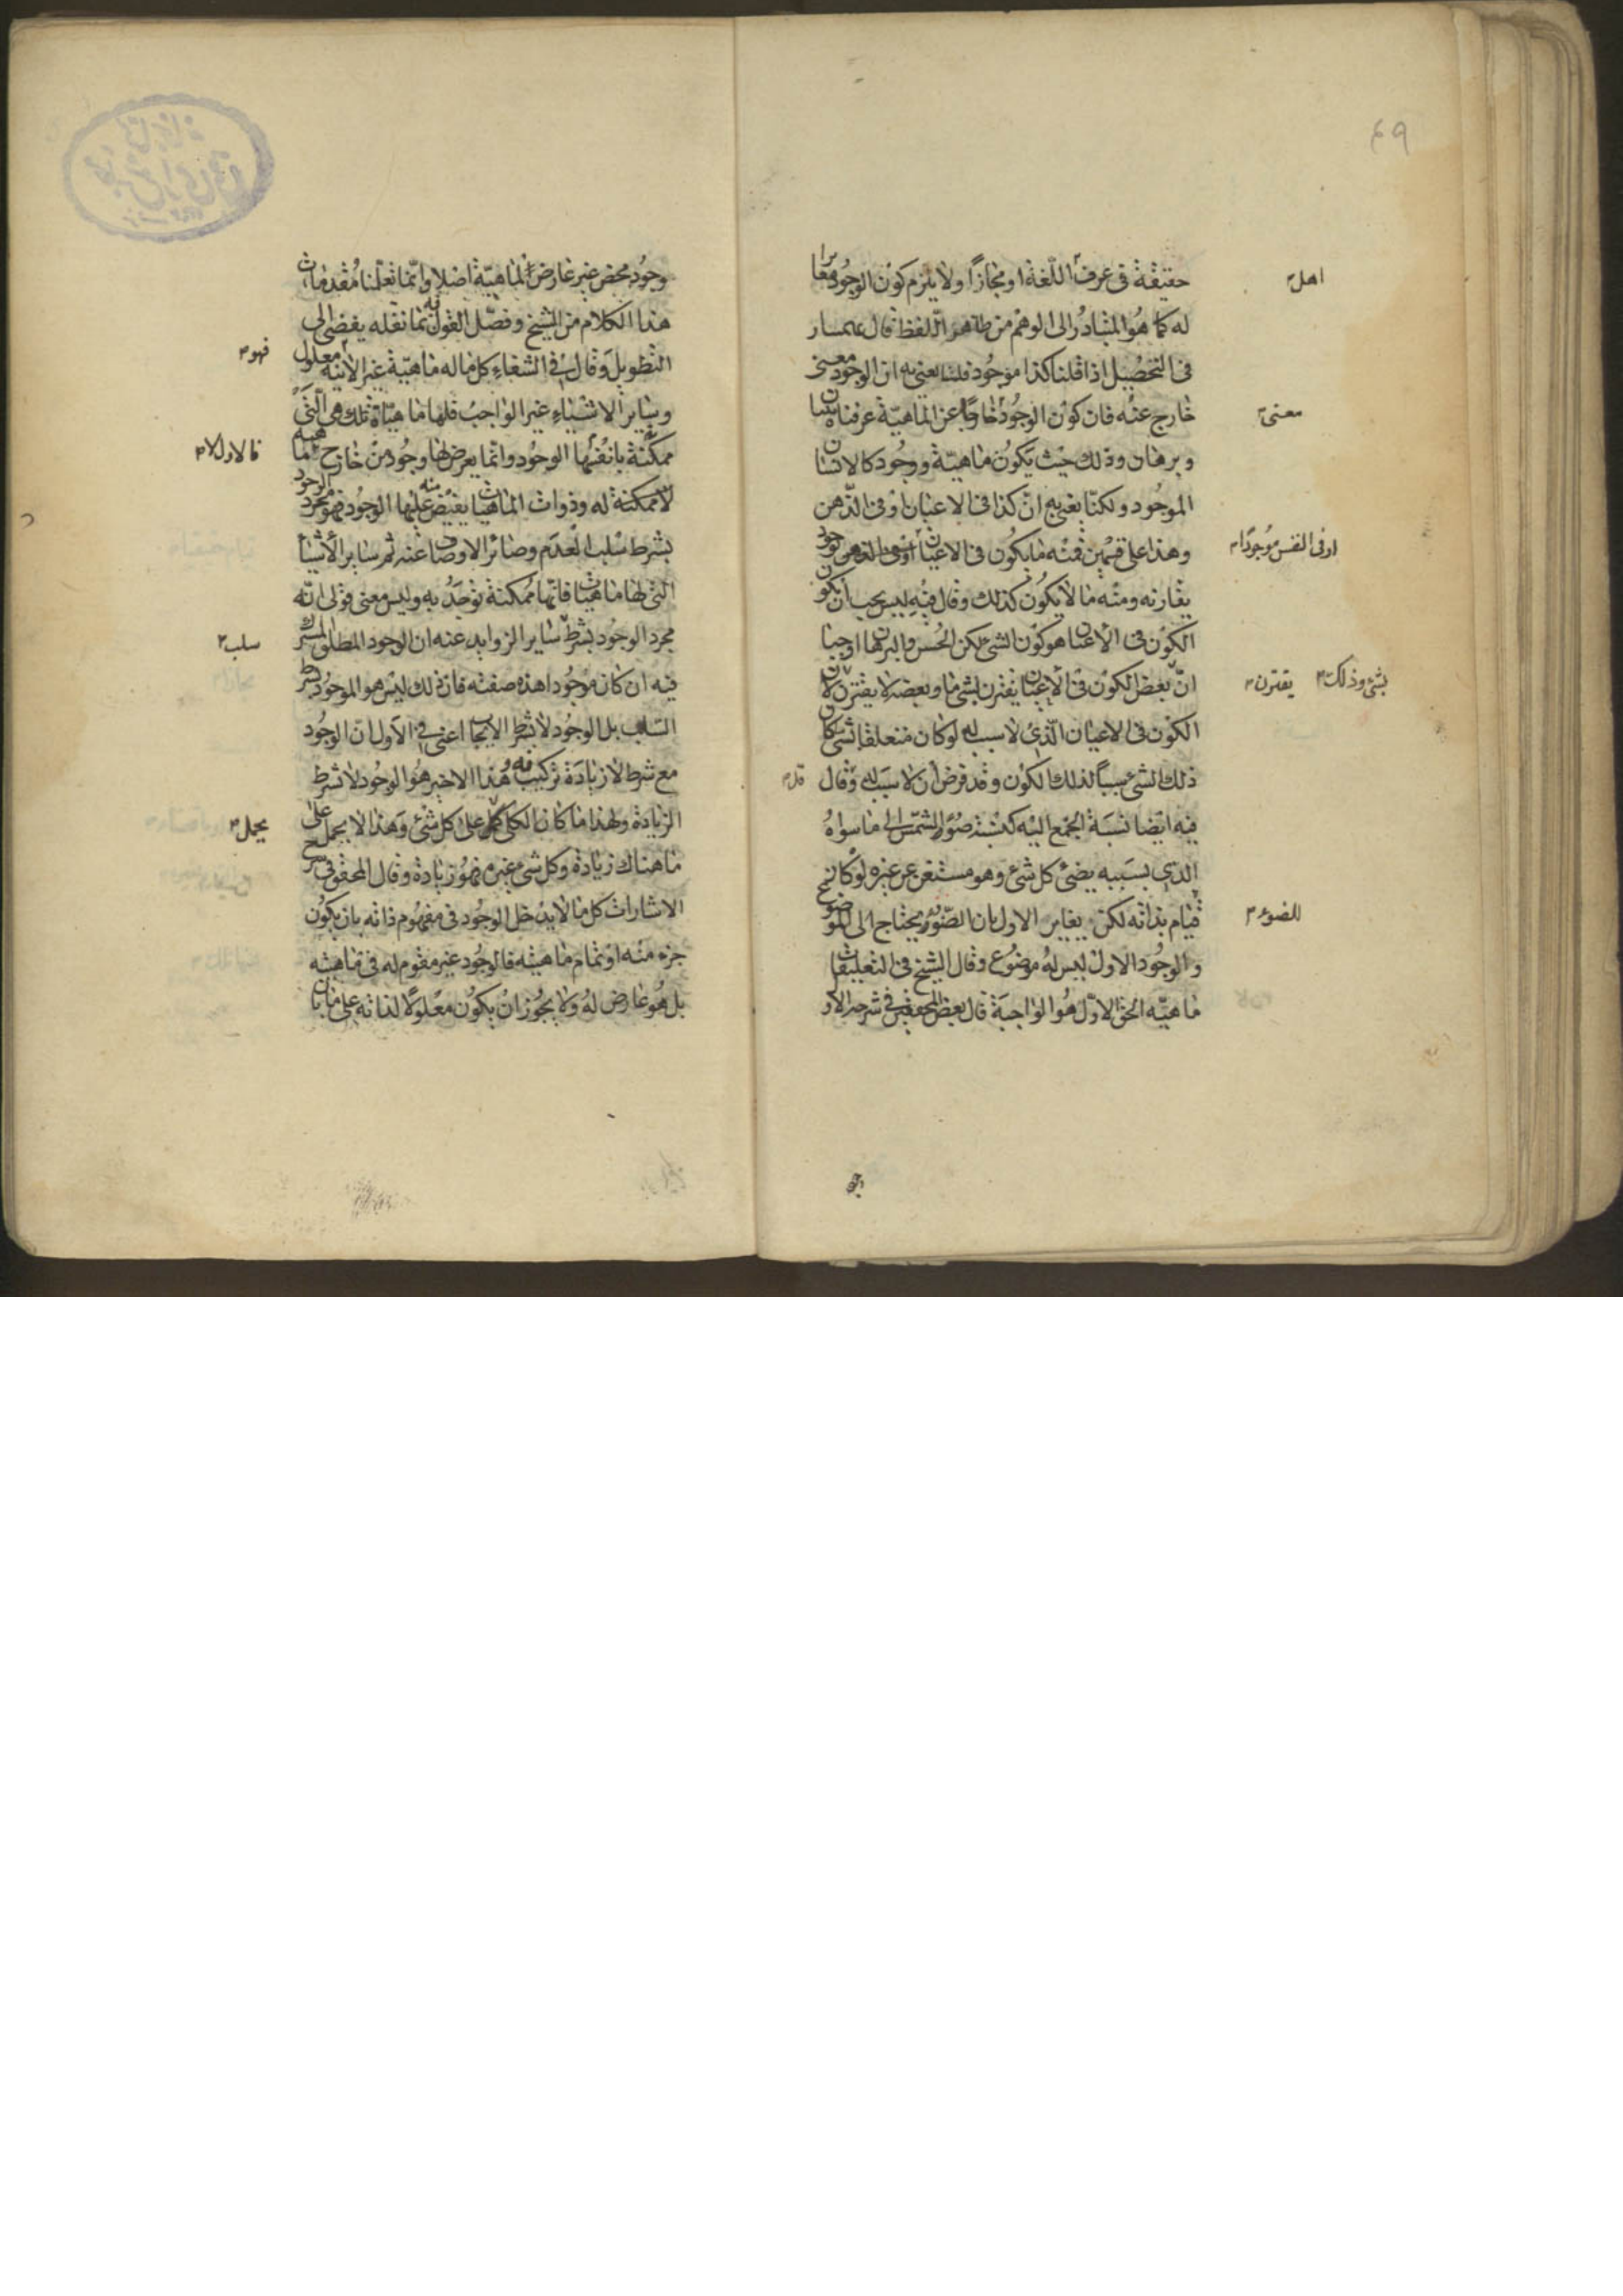 ٤٩
حقيقة فى عرف اللّغة او مجازاً ولا يلزم كون الوجود مغايرا
اهل
له كما هو المتبادر الى الوهم من ظاهر اللفظ قال بهمنيار
فى التحصيل اذا قلنا كذا موجود فلسنا نعنى به ان الوجود معنى
خارج عنه فان كون الوجود خارجا عن الماهيّة عرفناه ببيان
معنى
وبرهان وذلك حيث يكون ماهيّة ووجود كالانسان
الموجود ولكنّا نعنى به انّ كذا فى الاعيان او فى الذّهن
وهذا على قسمين فمنه ما يكون فى الاعيان او فى الذهن بوجود
او فى النفس موجودًا
يقارنه ومنه ما لا يكون كذلك وقال فيه ليس يجب ان يكون
الكون فى الاعيان هو كون الشئ لكن الحس والبرهان اوجبا
انّ بعض الكون فى الاعيان يقترن بشئ ما وبعضه لا يقترن لان
بشئ وذلك
يقترن
الكون فى الاعيان الّذى لا سبب له لو كان متعلقا بشئ كان
ذلك الشئ سبباً لذلك الكون وقد فرض ان لا سبب له وقال
فيه ايضا نسبة الجمع اليه كنسبة ضوء الشمس الى ما سواه
الذى بسببه يضئ كل شئ وهو مستغن عن غيره لو كان
قيام بذاته لكن يغاير الاول بان الضوء يحتاج الى الموضوع
للضوء
والوجود الاول ليس له موضوع وقال الشيخ فى التعليقات
ماهيّة الحق الاوّل هو الواجبة قال بعض المحققين فى شرحه الاو
وجود محض غير عارض لماهيّة اصلا وانّما نقلنا مقدمات
هذا الكلام من الشيخ وفصّل القول فيه بما نقله يفضى الى
التطويل وقال فى الشفاء كل ما له ماهيّة غير الانيه معلول
فهو
وساير الاشياء غير الواجب فلها ماهيّاة تلك هى الّتى
ممكنة بانفسها الوجود وانّما يعرض لها وجود من خارج
فالاول لا
لا ممكنة له وذوات الماهيات يفيض عليها الوجود منه فهو مجرد الوجود
بشرط سلب العدم وسائر الاوصاف عنه ثم ساير الأشيا
التى لها ماهيات فانّها ممكنة توجد به وليس معنى قولى انّه
مجرد الوجود بشرط ساير الزوايد عنه ان الوجود المطلق المشترك
سلب
فيه ان كان موجود اهذه صفته فان ذلك ليس هو الموجود بشرط
السلب بل الوجود لا بشرط الايجاب اعنى فى الاول ان الوجود
مع شرط لا زيادة تركيب فيه وهذا الاخير هو الوجود لا بشرط
الزيادة ولهذا ما كان الكلى يحمل على كل شئ وهذا لا يحمل على
يحمل
ما هناك زيادة وكل شئ غيره فهو زيادة وقال المحقق فى شرح
الاشارات كل ما لا يدخل الوجود فى مفهوم ذاته بان يكون
جزء منه او تمام ماهيته فالوجود غير مقوم له فى ماهيته
بل هو عارض له ولا يجوز ان يكون معلولا لذاته على ما بان